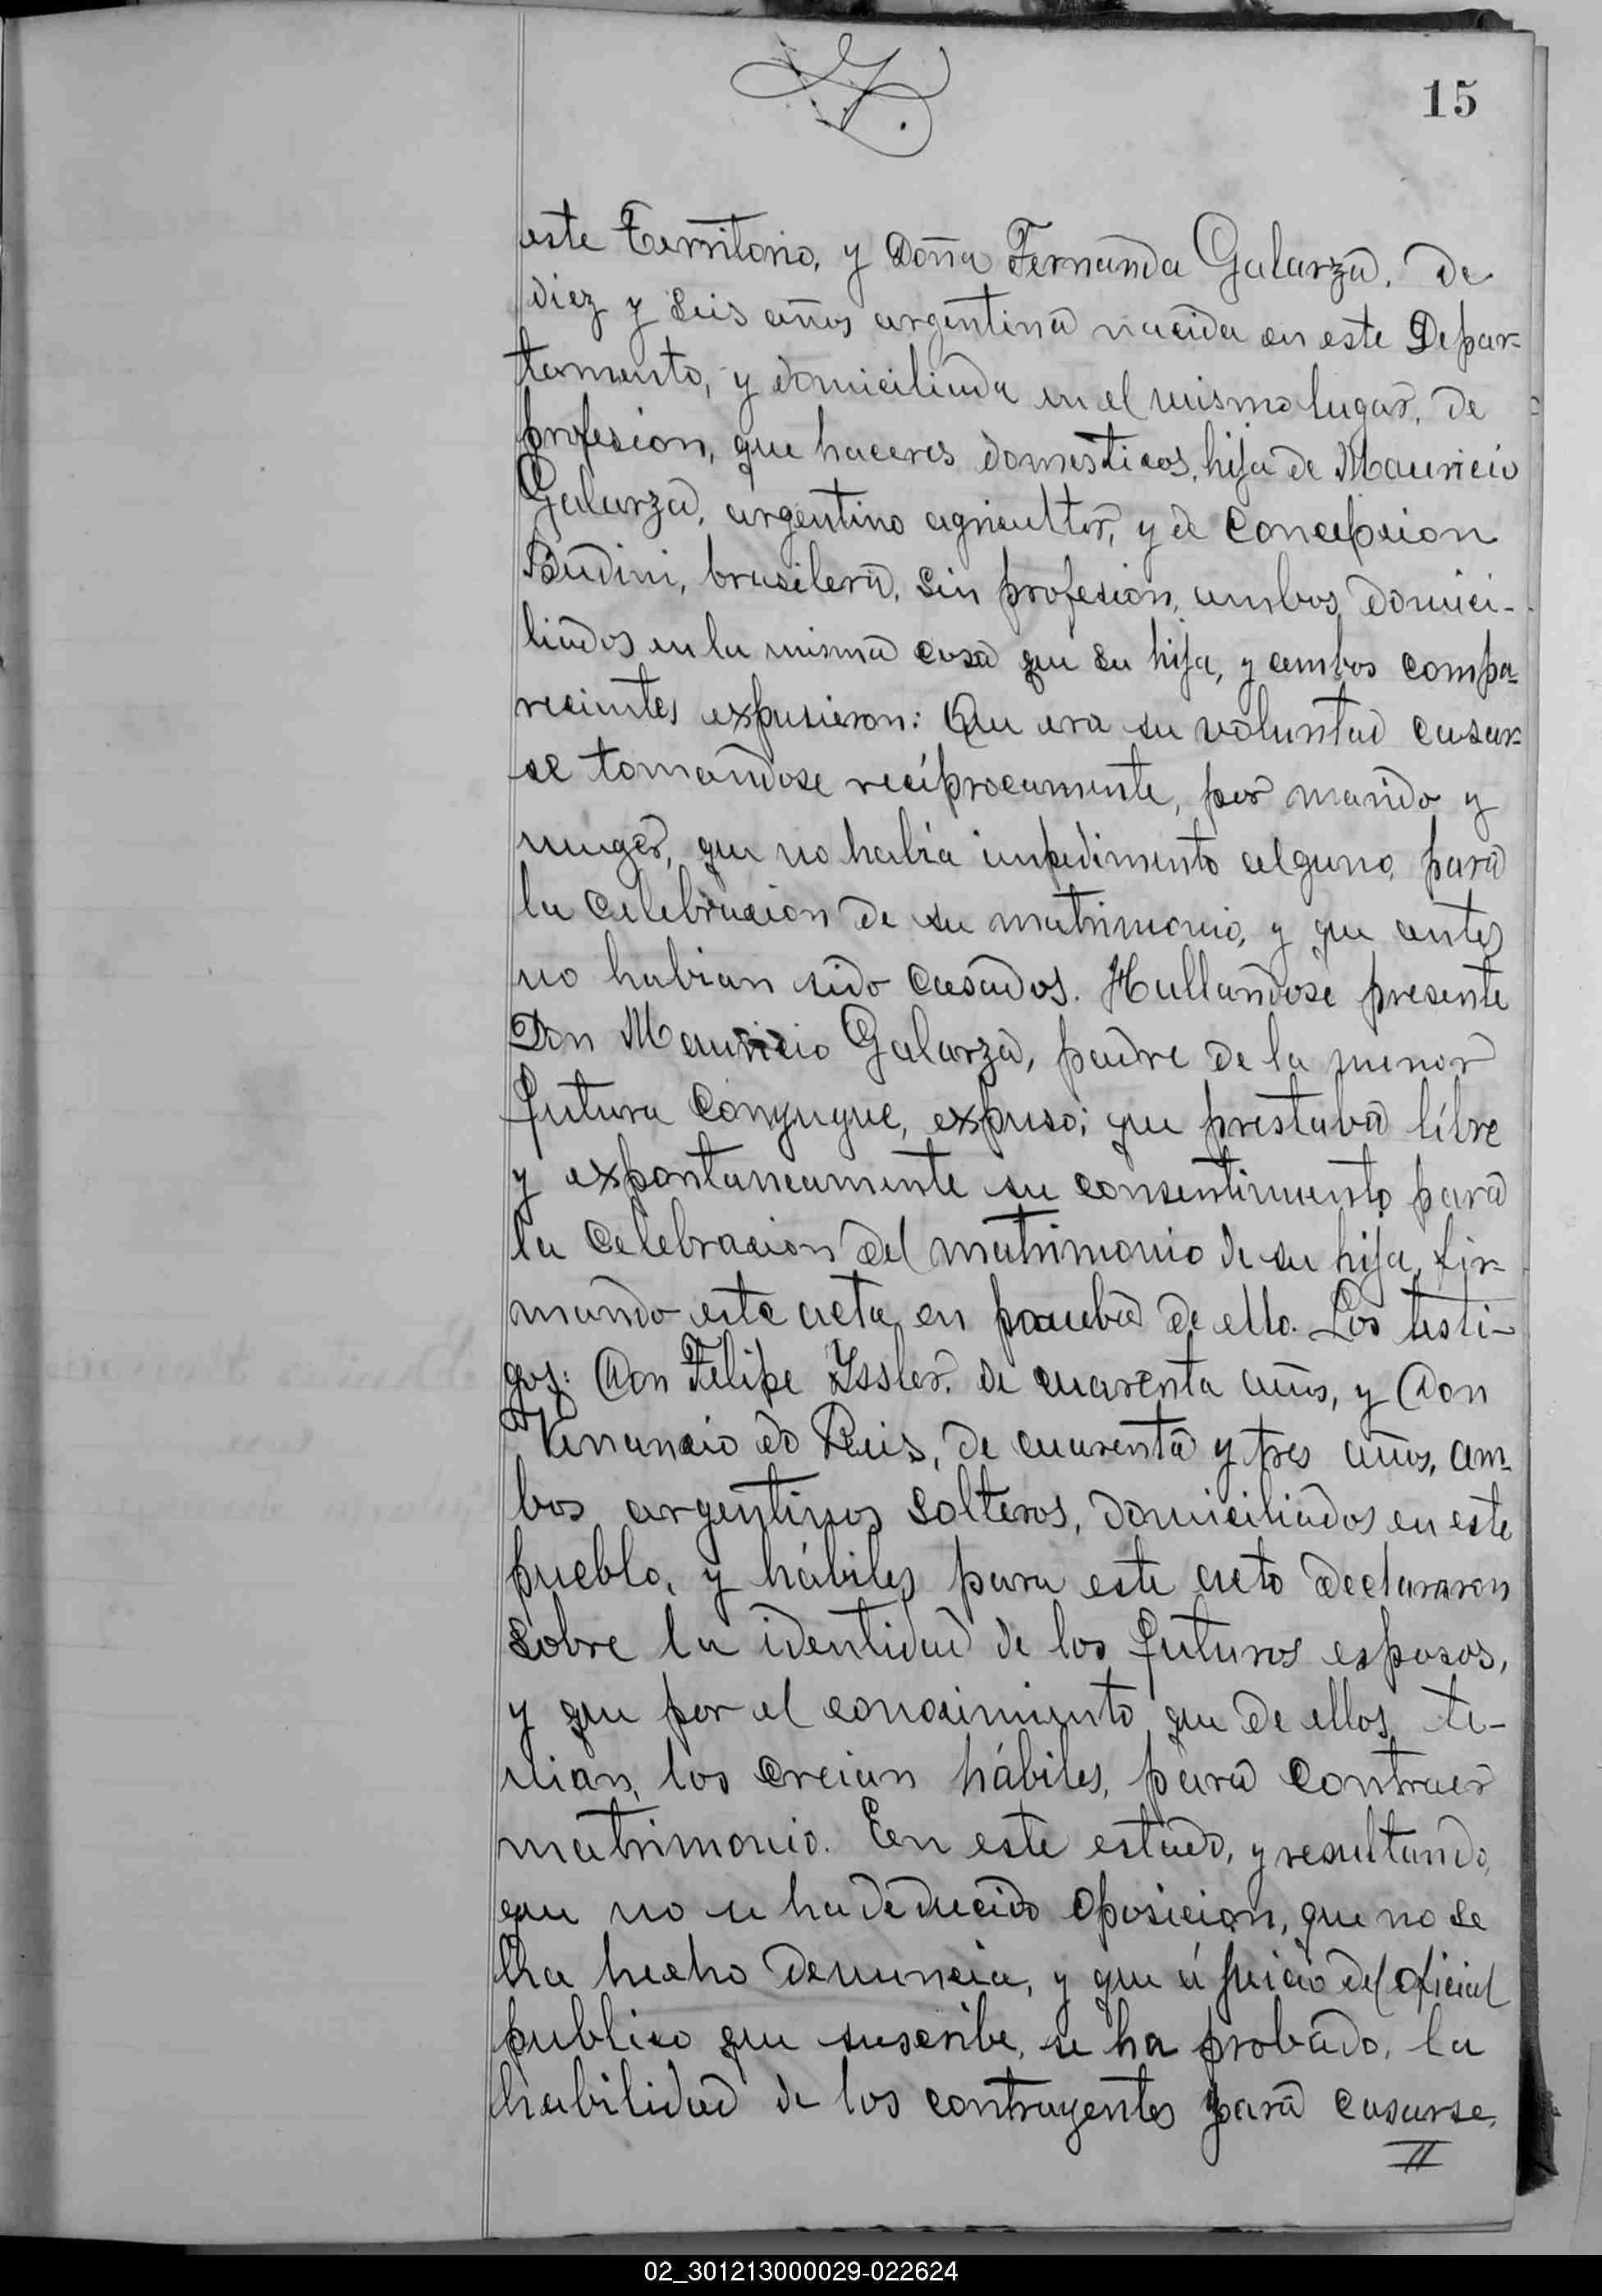 15
este Territorio, y Doña Fernanda Galarza, de
diez y seis años argentina nacida en este Depar=
tamento, y domiciliada en el mismo lugar, de
profesion, que haceres domesticos, hija de Mauricio
Galarza, argentino agricultor, y de Concepcion
Budini, brasilera, sin profesion, ambos domici-
liados en la misma casa que su hija, y ambos compa=
recientes expusieron: Que era su voluntad casar=
se tomandose recíprocamente, por marido y
muger, que no había impedimento alguno, para
la celebracion de su matrimonio, y que antes
no habian sido casados. Hallandose presente
Don Mauricio Galarza, padre de la menor
futura conyugue, expuso; que prestaba líbre
y expontaneamente su consentimiento para
la celebracion del matrimonio de su hija, fir=
mando esta acta, en prueba de ello. Los testi-
gos: Don Felipe Yssler, de cuarenta años, y Don
Venancio do Reis, de cuarenta y tres años, am-
bos argentinos solteros, domiciliados en este
pueblo, y hábiles para este acto declararon
sobre la identidad de los futuros esposos,
y que por el conocimiento que de ellos te-
nian, los creian hábiles, para contraer
matrimonio. En este estado, y resultando,
que no se ha deducido oposicion, que no se
ha hecho denuncia, y que á juicio del oficial
publico que suscribe, se ha probado, la
habilidad de los contrayentes para casarse,
//
02_301213000029-022624